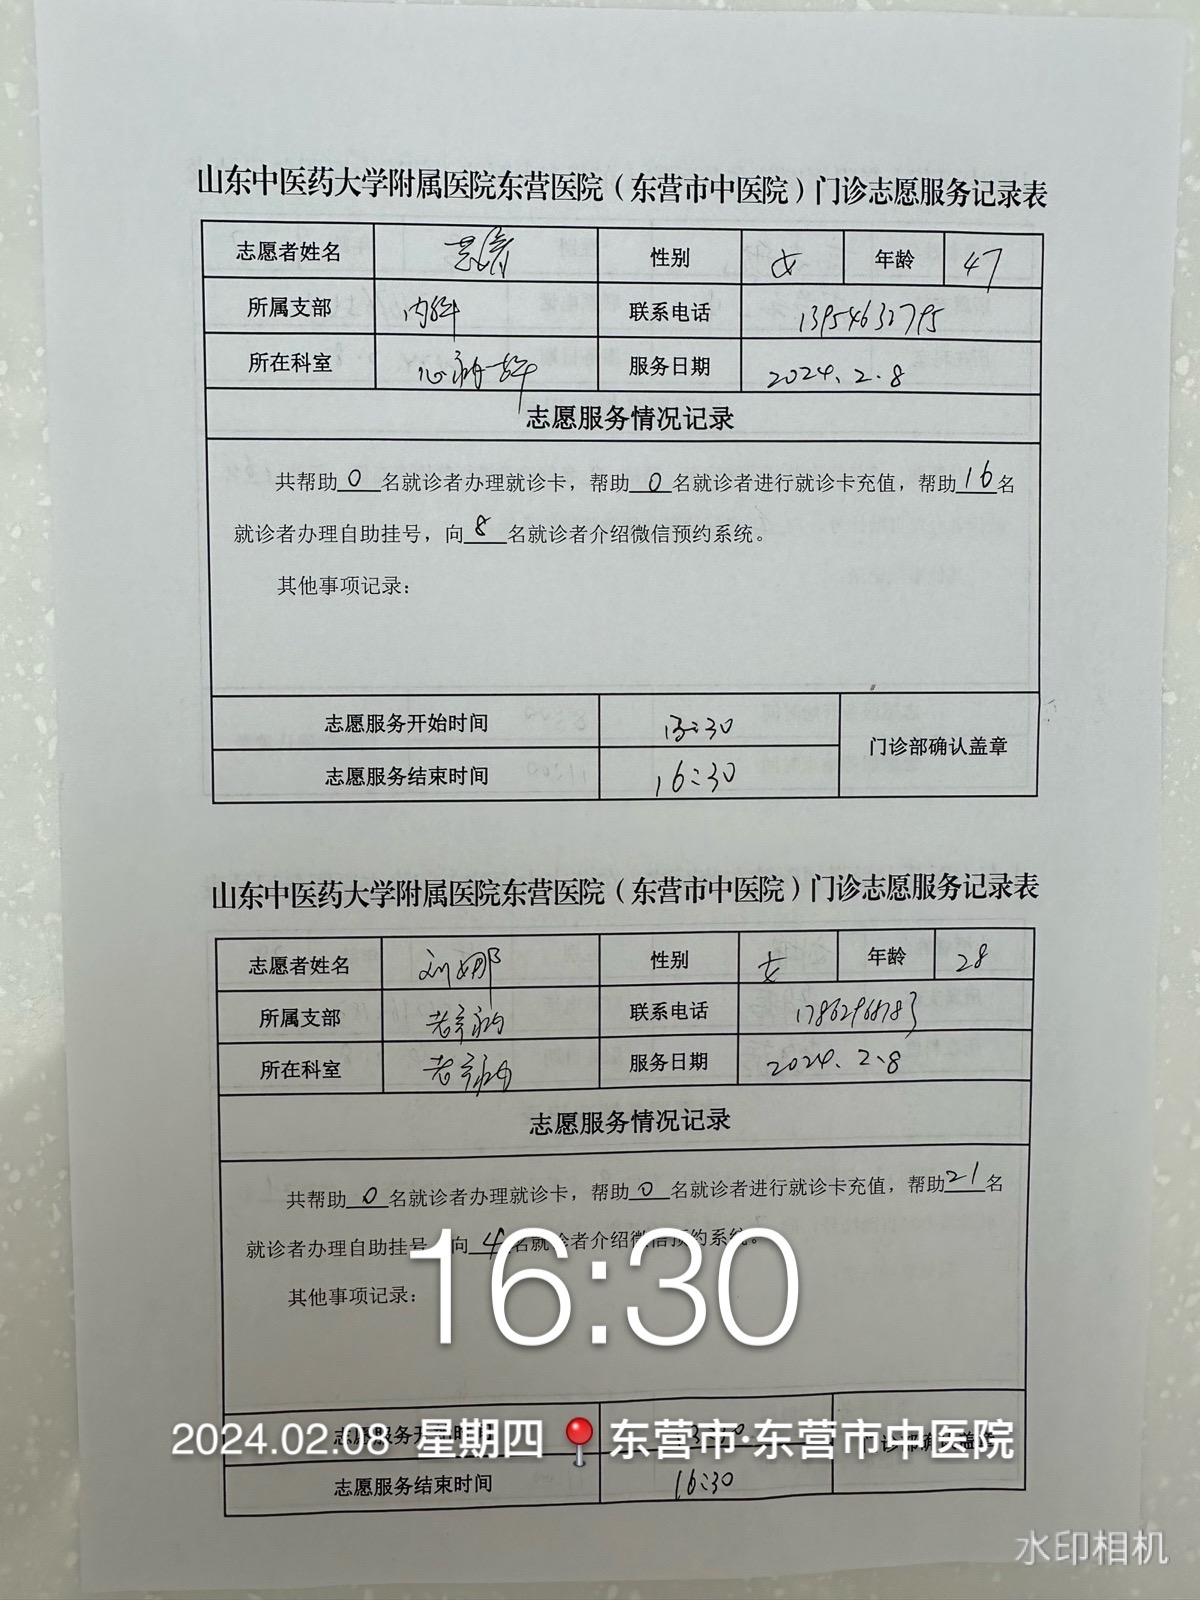 山东中医药大学附属医院东营医院（东营市中医院）门诊志愿服务记录表
志愿者姓名 性别 女 年龄 47
所属支部 内科 联系电话 13954632795
所在科室 服务日期 2024.2.8
志愿服务情况记录
共帮助0名就诊者办理就诊卡，帮助0名就诊者进行就诊卡充值，帮助16名
就诊者办理自助挂号，向8名就诊者介绍微信预约系统。
其他事项记录：
志愿服务开始时间 13:30
门诊部确认盖章
志愿服务结束时间 16:30
山东中医药大学附属医院东营医院（东营市中医院）门诊志愿服务记录表
志愿者姓名 刘娜 性别 女 年龄 28
所属支部 联系电话
所在科室 服务日期 2024.2.8
志愿服务情况记录
共帮助0名就诊者办理就诊卡，帮助0名就诊者进行就诊卡充值，帮助21名
就诊者办理自助挂号，向4名就诊者介绍微信预约系统。
其他事项记录：
16:30
志愿服务开始时间
门诊部确认盖章
2024.02.08 星期四 东营市·东营市中医院
志愿服务结束时间 16:30
水印相机